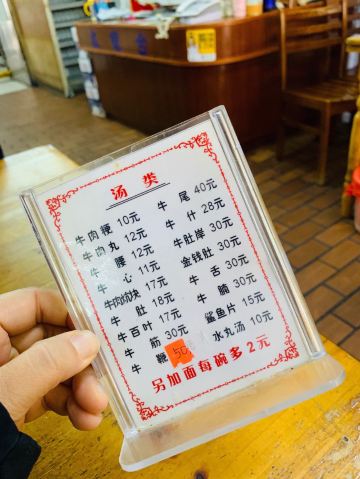 汤类
牛肉粳 10元
牛肉丸 12元
牛腰 12元
牛心 11元
牛肉坑块 17元
牛肚 18元
牛百叶 17元
牛筋 30元
牛鞭 50
牛尾 40元
牛什 28元
牛肚岸 30元
金钱肚 30元
牛舌 30元
牛腩 30元
鲨鱼片 15元
水丸汤 10元
另加面每碗多2元